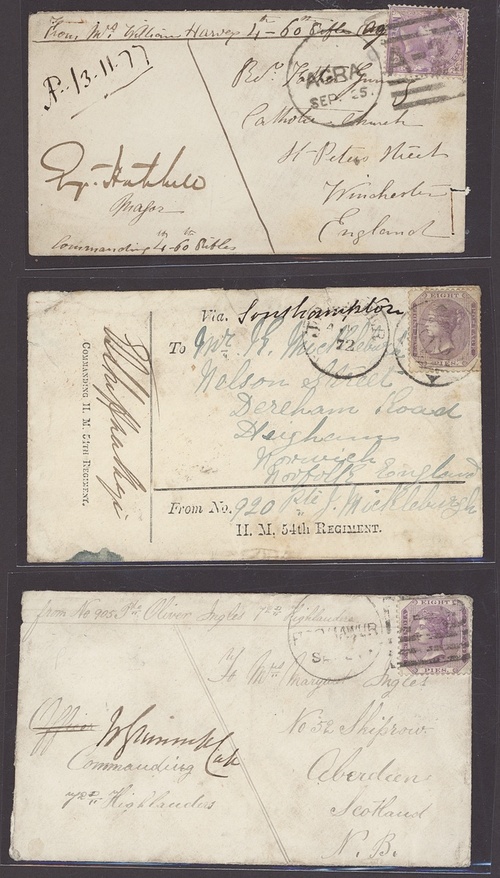 From Mrs William Harvey 4th-60th Rifles Ag
P. 13.11.77
AGRA
SEP. 25.
Catholic Church
St Peters Street
Winchester
England
Major
Commanding 4th-60th Rifles
Via. Southampton
EIGHT
PIES.
72
To Mr. R. Mickleburgh
Nelson Street
Dereham Road
Heigham
Norwich
Norfolk England
COMMANDING H. M. 54TH REGIMENT.
From No. 920 Pte J. Mickleburgh
H. M. 54th REGIMENT.
from No 905 Pte Oliver Ingles 72nd Highlanders
EIGHT
PIES.
To Mrs Margaret Ingles
No 52 Shiprow
Aberdeen
Scotland
N.B.
Commanding
72nd Highlanders